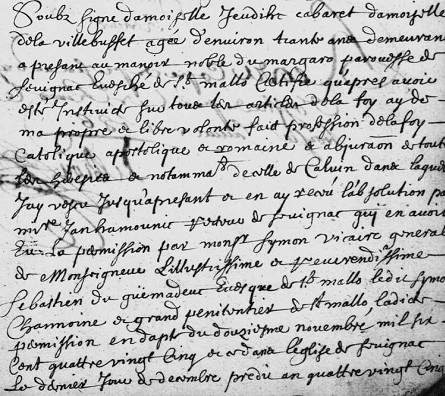 Soubz signe damoiselle Jeudiht cabaret damoiselle
de la villebusset agée d'environ trante ans demeurant
a presant au manoir noble du margaro parouesse de
sevignac Evesché de St mallo Certifie quapres avoir
esté Instruite sur tous les articles de la foy ay de
ma propre et libre volonte faict profession de la foy
Catolique apostolique et romaine et abjuration de toute
les heresies et notammt de celle de Calvin dans laquelle
Jay vescu Jusqu'apresant et en ay receu labsolution par
mire Jan hamounic recteur de sevignac qui en avoit
Eu la permission par monsr symon vicaire general
de Monseigneur Lillustrissime et reverendissime
sebastien du guemadeuc Evesque de St mallo ledit symon
Channoine et grand penitentier de St mallo, ladite
permission en dapte du douziesme novembre, mil six
Cent quattre vingt Cinq et ce dans l'eglise de sevignac
Le dernier Jour de decembre predit an quattre vingt Cinq